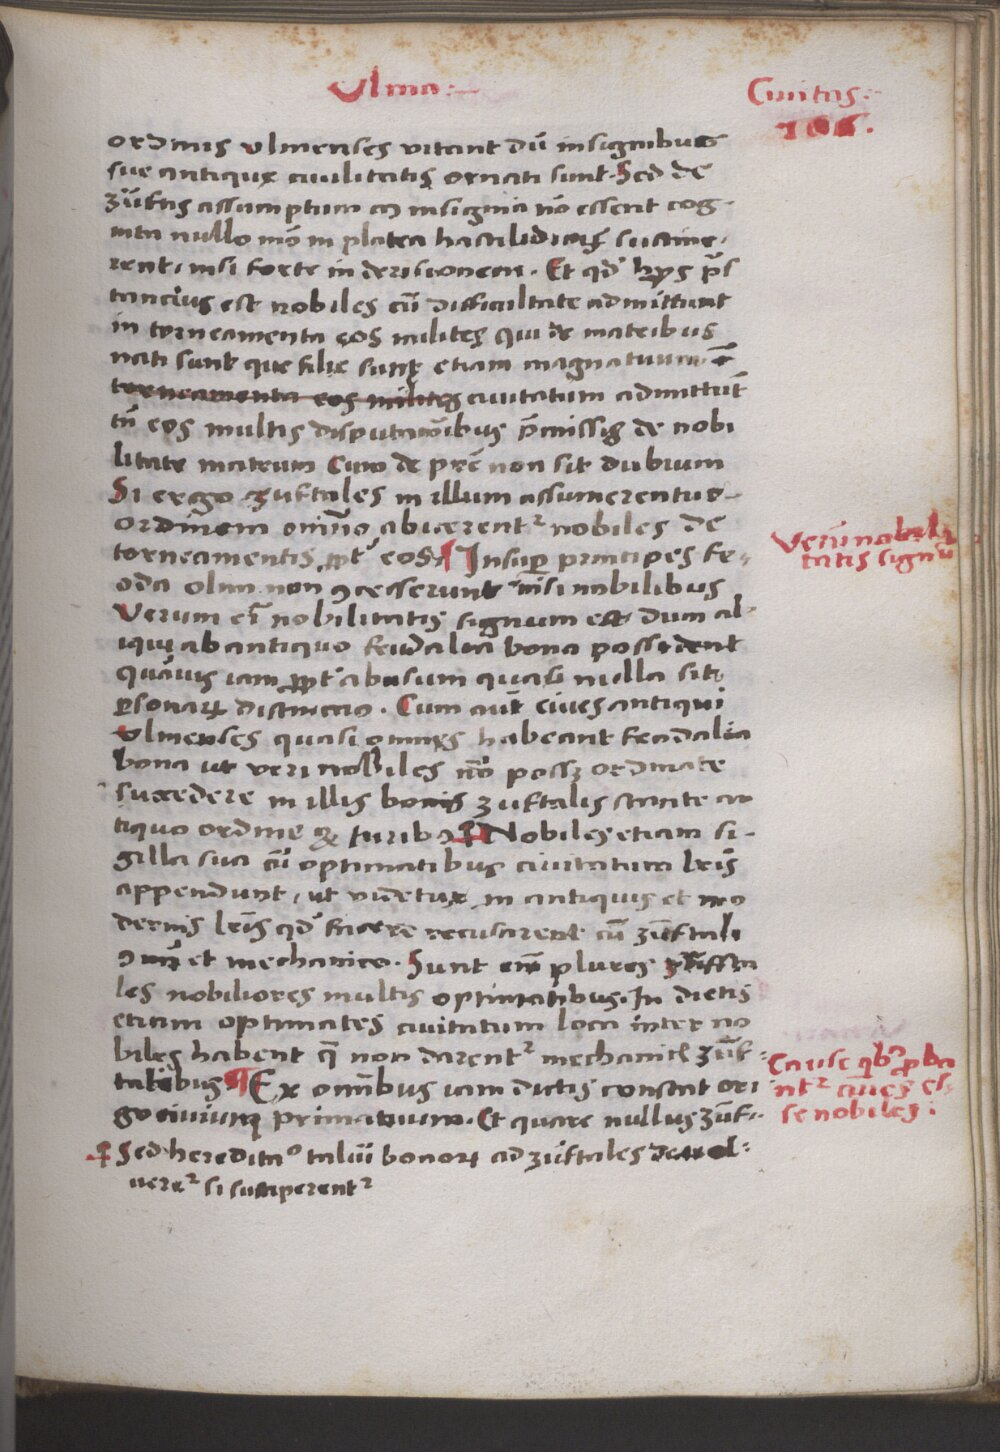 Vlma:
Ciuitas:
106.
ordinis vlmenses vitant dū insignibus
sue antique ciuilitatis ornati sunt. Sed de
zūftis assumptum cū insignia nō essent cog-
nita nullo mō in platea hastiludioꝝ sustine-
rent, nisi forte in derisionem. Et qd̄ hijs p̄s
tancius est nobiles cū difficultate admittunt
in torneamenta eos milites qui de matribus
nati sunt que filie sunt etiam magnatuum
torneamenta eos milites ciuitatum admittūt
tn̄ eos multis disputacōibus p̄missis de nobi
litate matrum Cum de pr̄e non sit dubium
Si ergo zuftales in illum assumerentur
ordinem omīno abicerentᷣ nobiles de
torneamentis ꝓpt᷑ eos. ¶ Insuꝑ principes fe-
oda olim non ꝯcesserunt nisi nobilibus
Verum em̄ nobilitatis signum est dum al-
iqui ab antiquo feudalia bona possident
quāuis iam ꝓpt᷑ abusum quasi nulla sit
ꝑsonaꝝ distinctio. Cum aut̄ ciues antiqui
vlmenses quasi omnes habeant feodalia
bona ut veri nobiles nō possꝫ ordinate
succedere in illis bonis zuftalis stante an
tiquo ordine & iuribꝯ ¶ Nobiles etiam si-
gilla sua cū optimatibus ciuitatum lr̄is
appendunt, ut videtur in antiquis et mo
dernis lr̄is qd̄ facere recusarent cū zūftali
et mechanico. Sunt em̄ plures zūffta
les nobiliores multis optimatibus. In dietis
etiam optimates ciuitatum loca inter no
biles habent q̄ non darentᷣ mechanicis zūf-
talibus ¶ Ex omībus iam dictis constat ori
go ciuium primatuum. Et quare nullus zūf-
Sed hereditaꝰ taliū bonoꝝ ad zūftales deuol-
uereᷣ si susciperentᷣ
Verū nobili
tatis signū
Cause qbꝰ ꝓba
ntᷣ ciues es-
se nobiles: